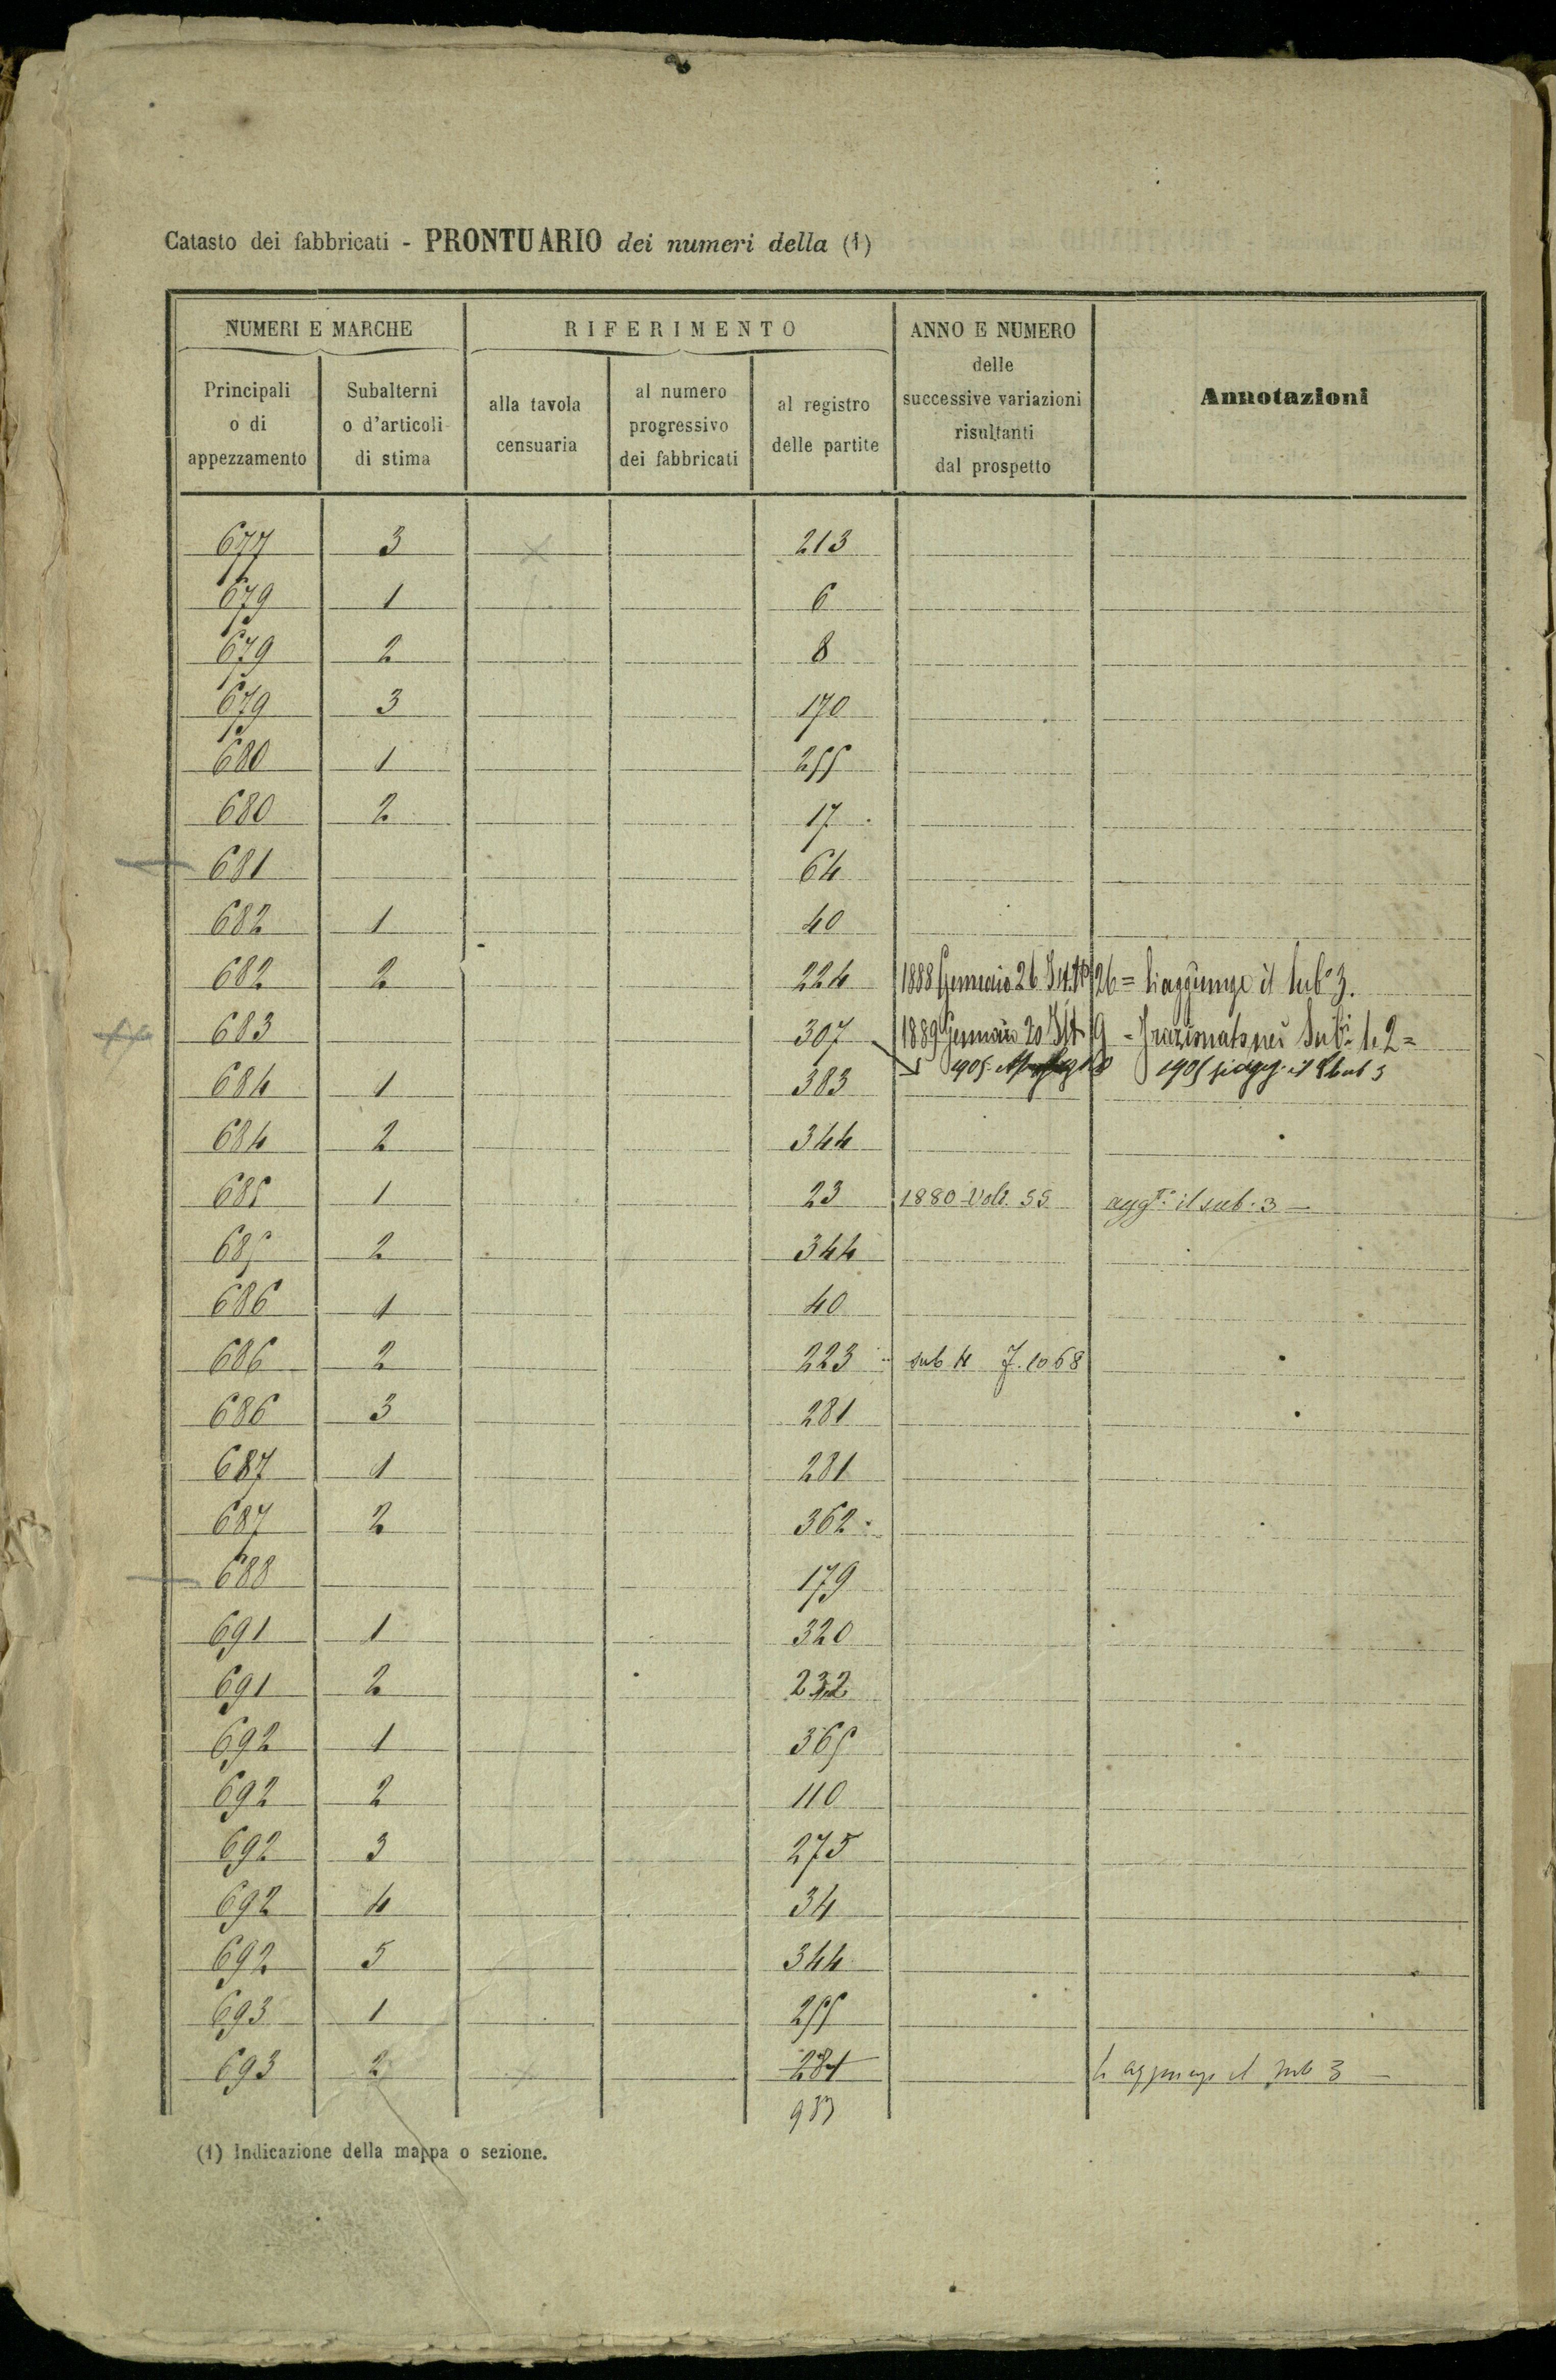 Catasto dei fabbricati - PRONTUARIO dei numeri della (1)
NUMERI E MARCHE
RIFERIMENTO
ANNO E NUMERO
delle
successive variazioni
risultanti
dal prospetto
Annotazioni
Principali
o di
appezzamento
Subalterni
o d'articoli
di stima
alla tavola
censuaria
al numero
progressivo
dei fabbricati
al registro
delle partite
677 3 213
679 1 6
679 2 8
679 3 170
680 1 255
680 2 17
681 64
682 1 40
682 2 224 1888 Gennaio 26 26 = Si aggiunge il Sub° 3.
683 307 1889 Gennaio 20 9 - Frazionato nei Subi 1. 2 =
1905 1905 si agg. il Sub 3
684 1 383
684 2 344
685 1 23 1880 Volt. 55 aggto il sub. 3 —
685 2 344
686 1 40
686 2 223 sub 4 F. 1068
686 3 281
687 1 281
687 2 362
688 179
691 1 320
691 2 232
692 1 365
692 2 110
692 3 275
692 4 34
692 5 344
693 1 255
693 2 281 Si aggiunge il sub 3 —
933
(1) Indicazione della mappa o sezione.